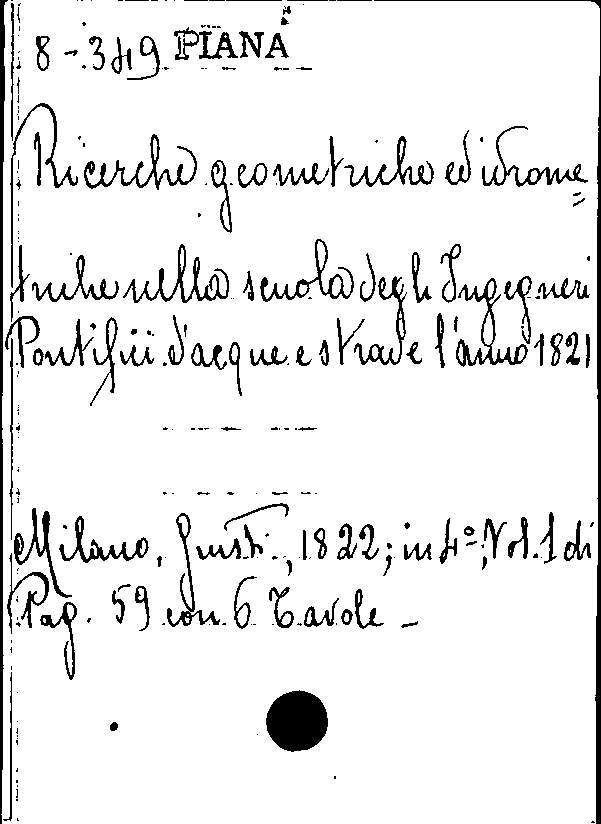 8-349 PIANA
Ricerche geometriche ed idrome=
triche nella scuola degli Ingegneri
Pontificii d'acque e strade l'anno 1821
Milano, Giusti, 1822; in 4º, Vol. 1 di
Pag. 59 con 6 Tavole -